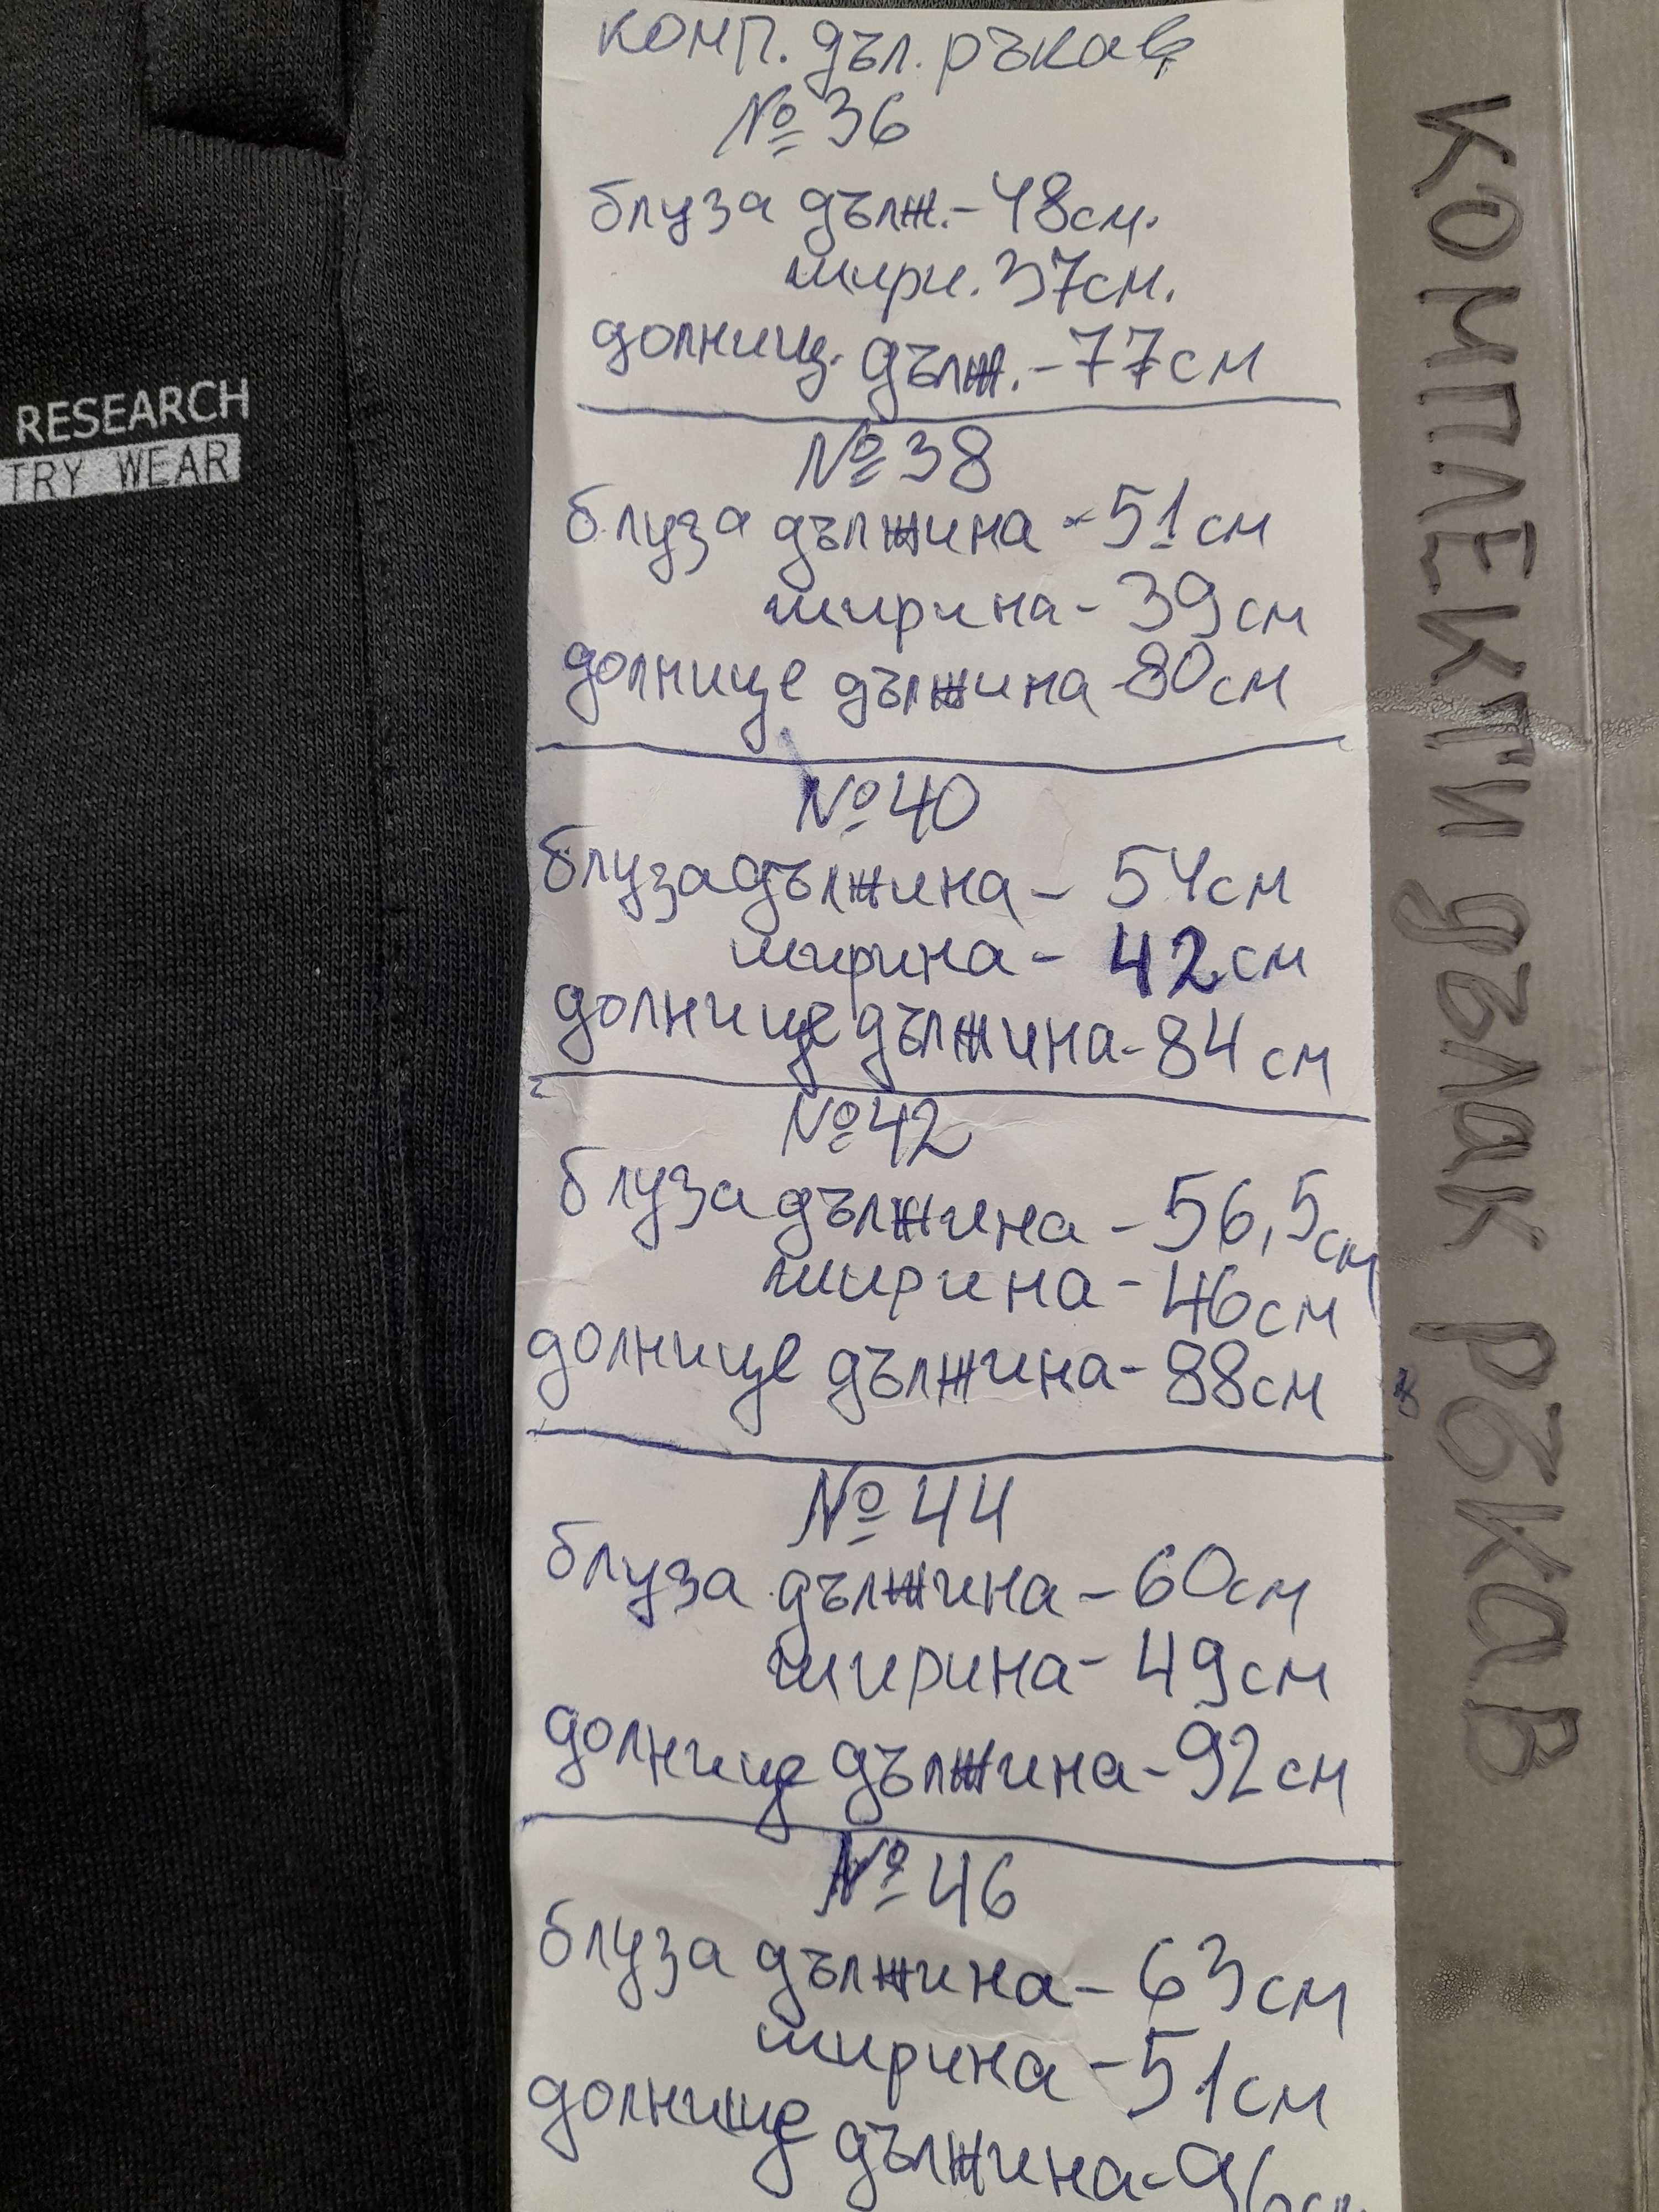 RESEARCH
TRY WEAR
комп. дъл. ръкав
№ 36
блуза дълж. - 48см.
шири. 37см.
долниц. дълж. - 77см
№ 38
блуза дължина - 51см
ширина - 39см
долнище дължина - 80см
№ 40
блуза дължина - 54см
ширина - 42см
долнище дължина - 84см
№ 42
блуза дължина - 56,5см
ширина - 46см
долнище дължина - 88см
№ 44
блуза дължина - 60см
ширина - 49см
долнище дължина - 92см
№ 46
блуза дължина - 63см
ширина - 51см
долнище дължина - 96см
КОМПЛЕКТИ ДЪЛАК РЪКАВ